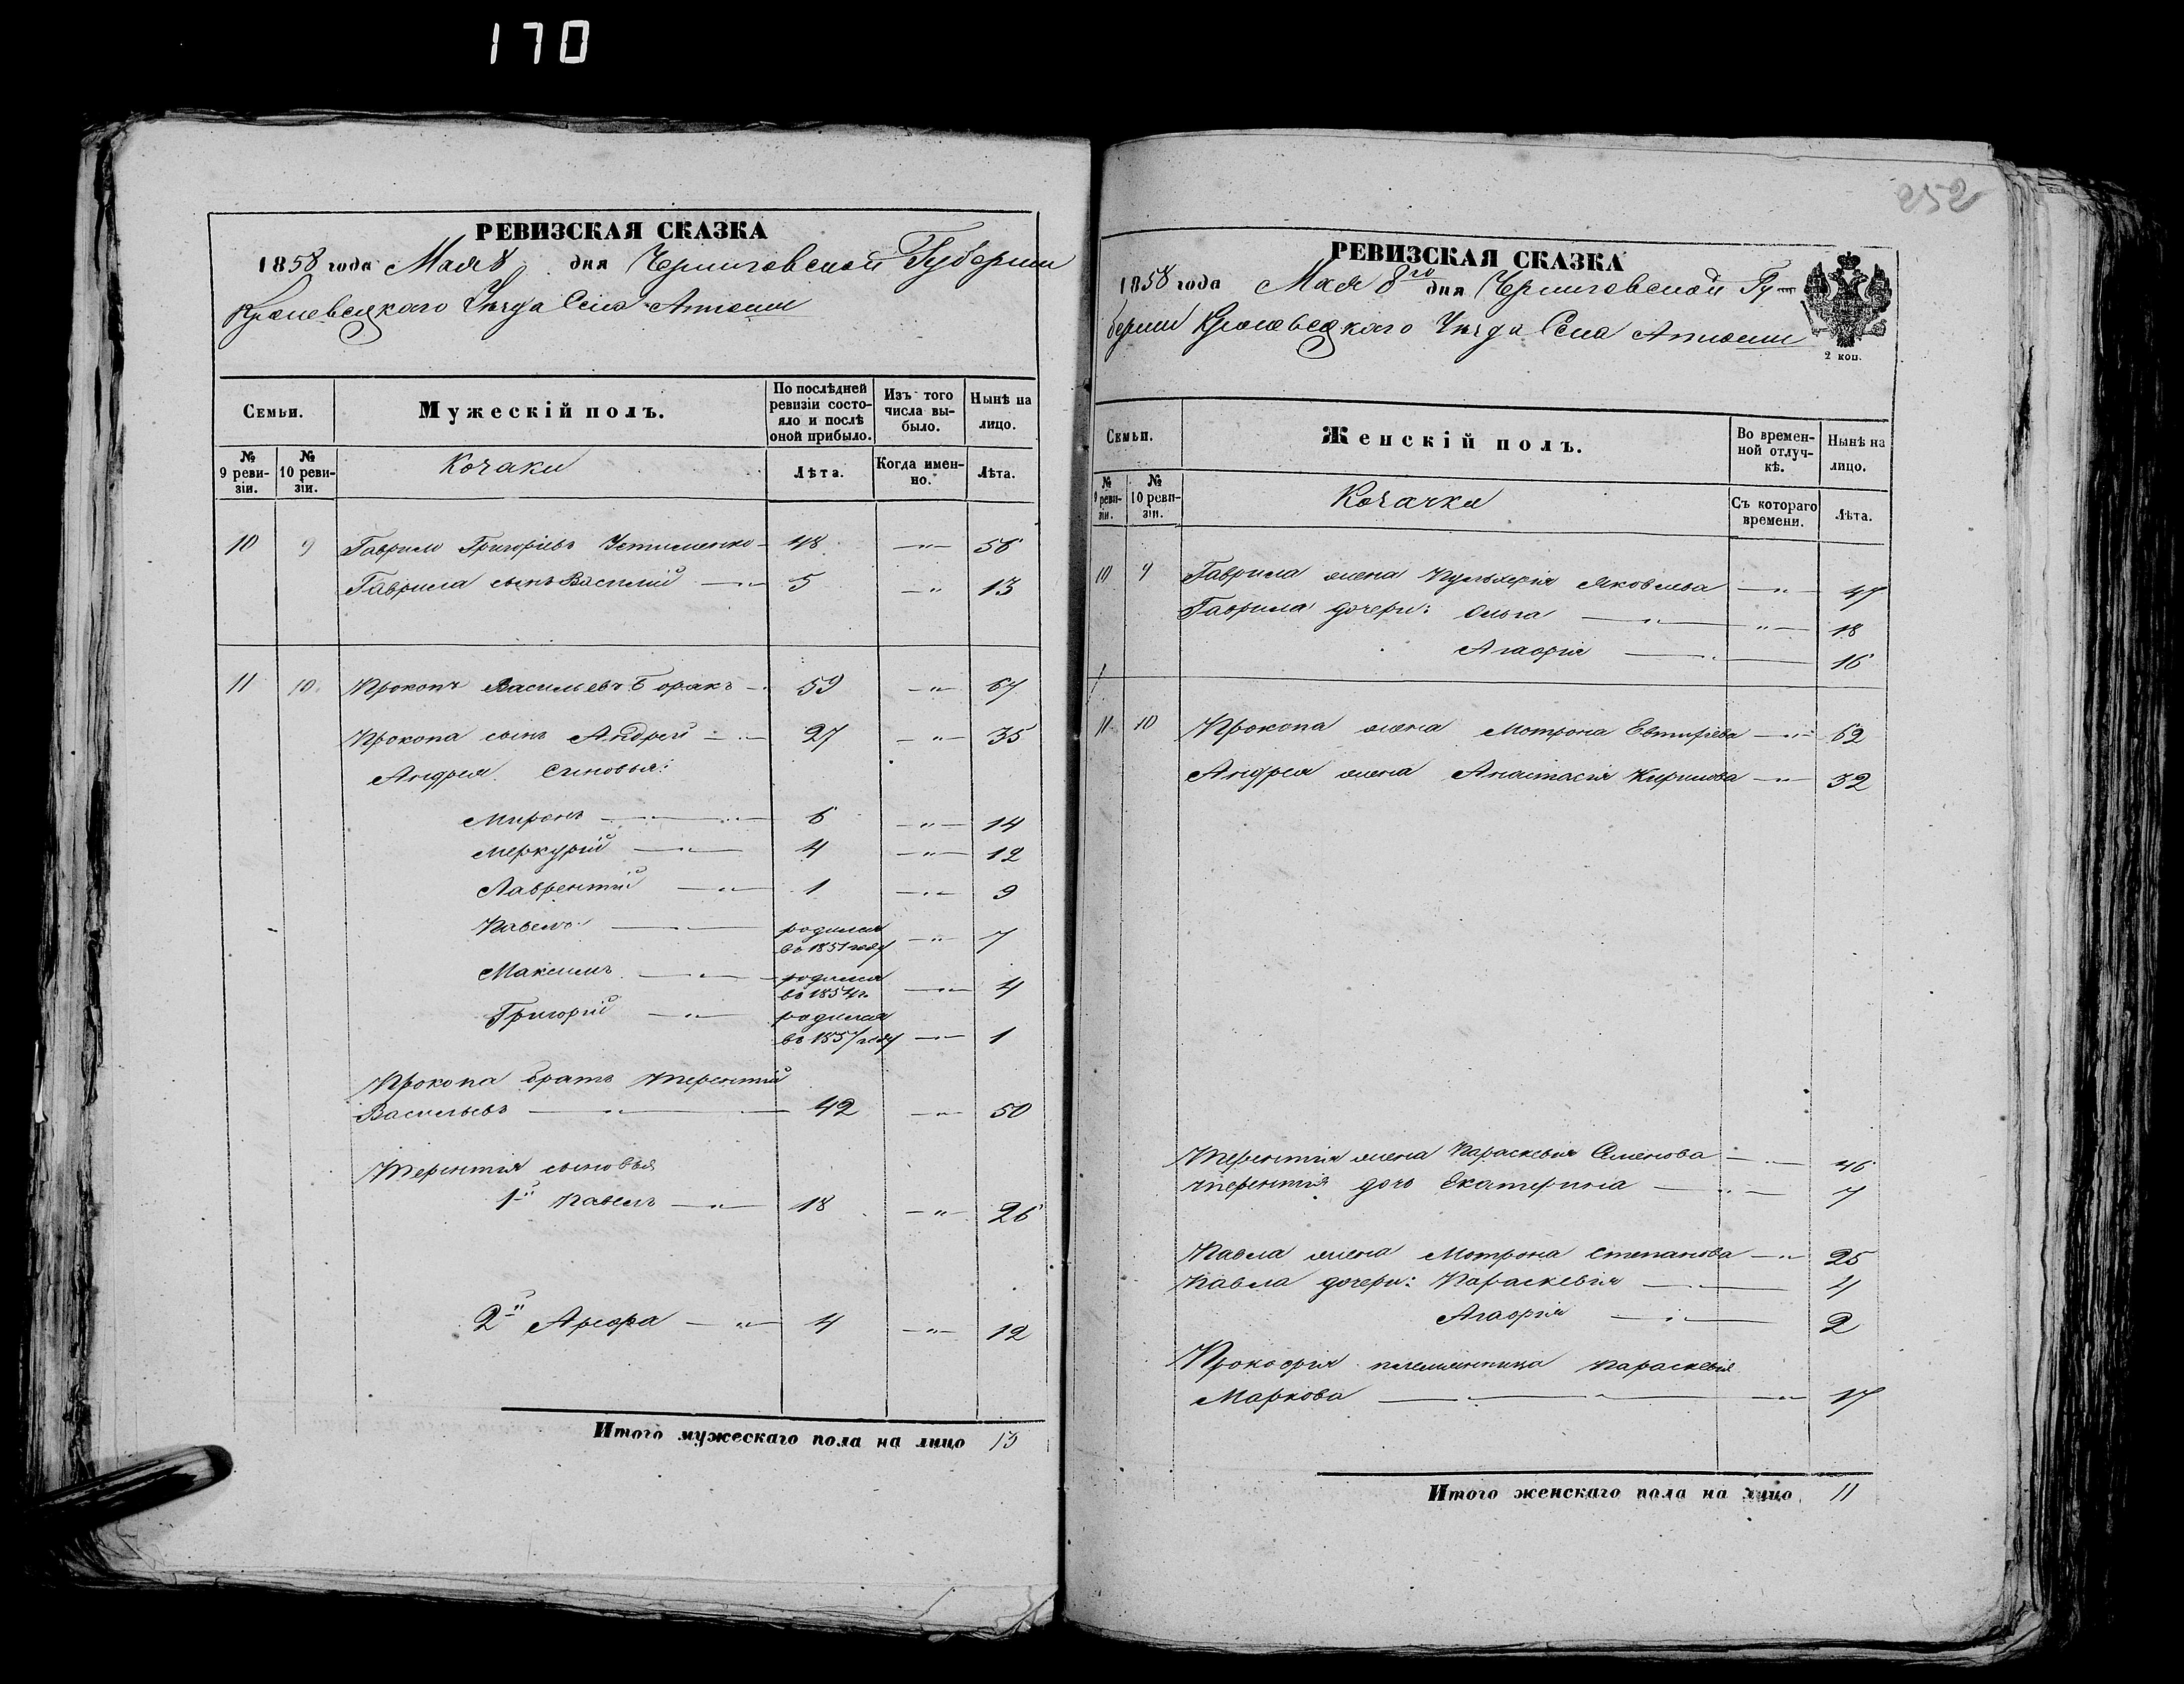 170
РЕВИЗСКАЯ СКАЗКА
1858 года Мая 8 дня Черниговской Губернии
Кролевецкого Уезда Села
Семьи.
Мужескій полъ.
По послѣдней ревизіи состояло и послѣ оной прибыло.
Изъ того числа выбыло.
Нынѣ на лицо.
№ 9 ревизіи.
№ 10 ревизіи.
Козаки
Лѣта.
Когда именно.
Лѣта.
10 9 Гаврило Григоріевъ Устименко 48 — " — 56
Гаврила сынъ Василій — " 5 — " 13
11 10 Прокопъ Васильевъ Боракъ 59 — " — 67
Прокопа сынъ Андрей 27 — " — 35
Андрея синовья:
Миронъ — " — 6 — " — 14
Меркурій — " — 4 — " — 12
Лаврентій — " — 1 — " — 9
Павелъ — родился въ 1851 году — " — 7
Максимъ — " — родился въ 1854 г. — " — 4
Григорій — " — родился въ 1857 году — " — 1
Прокопа братъ Терентій
Васильевъ — " — 42 — " — 50
Терентія сыновья
1й Павелъ — " — 18 — " — 26
2й — " — 4 — " — 12
Итого мужескаго пола на лицо 13
252
РЕВИЗСКАЯ СКАЗКА
1858 года Мая 8го дня Черниговской Гу-
берніи Кролевецкого Уезда Села
2 коп.
Семьи.
Женскій полъ.
Во временной отлучкѣ.
Нынѣ на лицо.
№ 9 ревизіи.
№ 10 ревизіи.
Козачки
Съ котораго времени.
Лѣта.
10 9 Гаврила жена Пульхерія Яковлева — " — 47
Гаврила дочери: Ольга — " — " — 18
Агафія — " — 16
11 10 Прокопа жена Мотрона Евтифіева — " — 62
Андрея жена Анастасія Кирилова — " — 32
Терентія жена Параскевія Семенова — " — 46
Терентія дочь Екатерина — " — 7
Павла жена Мотрона Степанова — " 25
Павла дочери: Параскевія — " — 4
Агафія — " — 2
племянница Параскевія
Маркова — " — 17
Итого женскаго пола на лицо 11